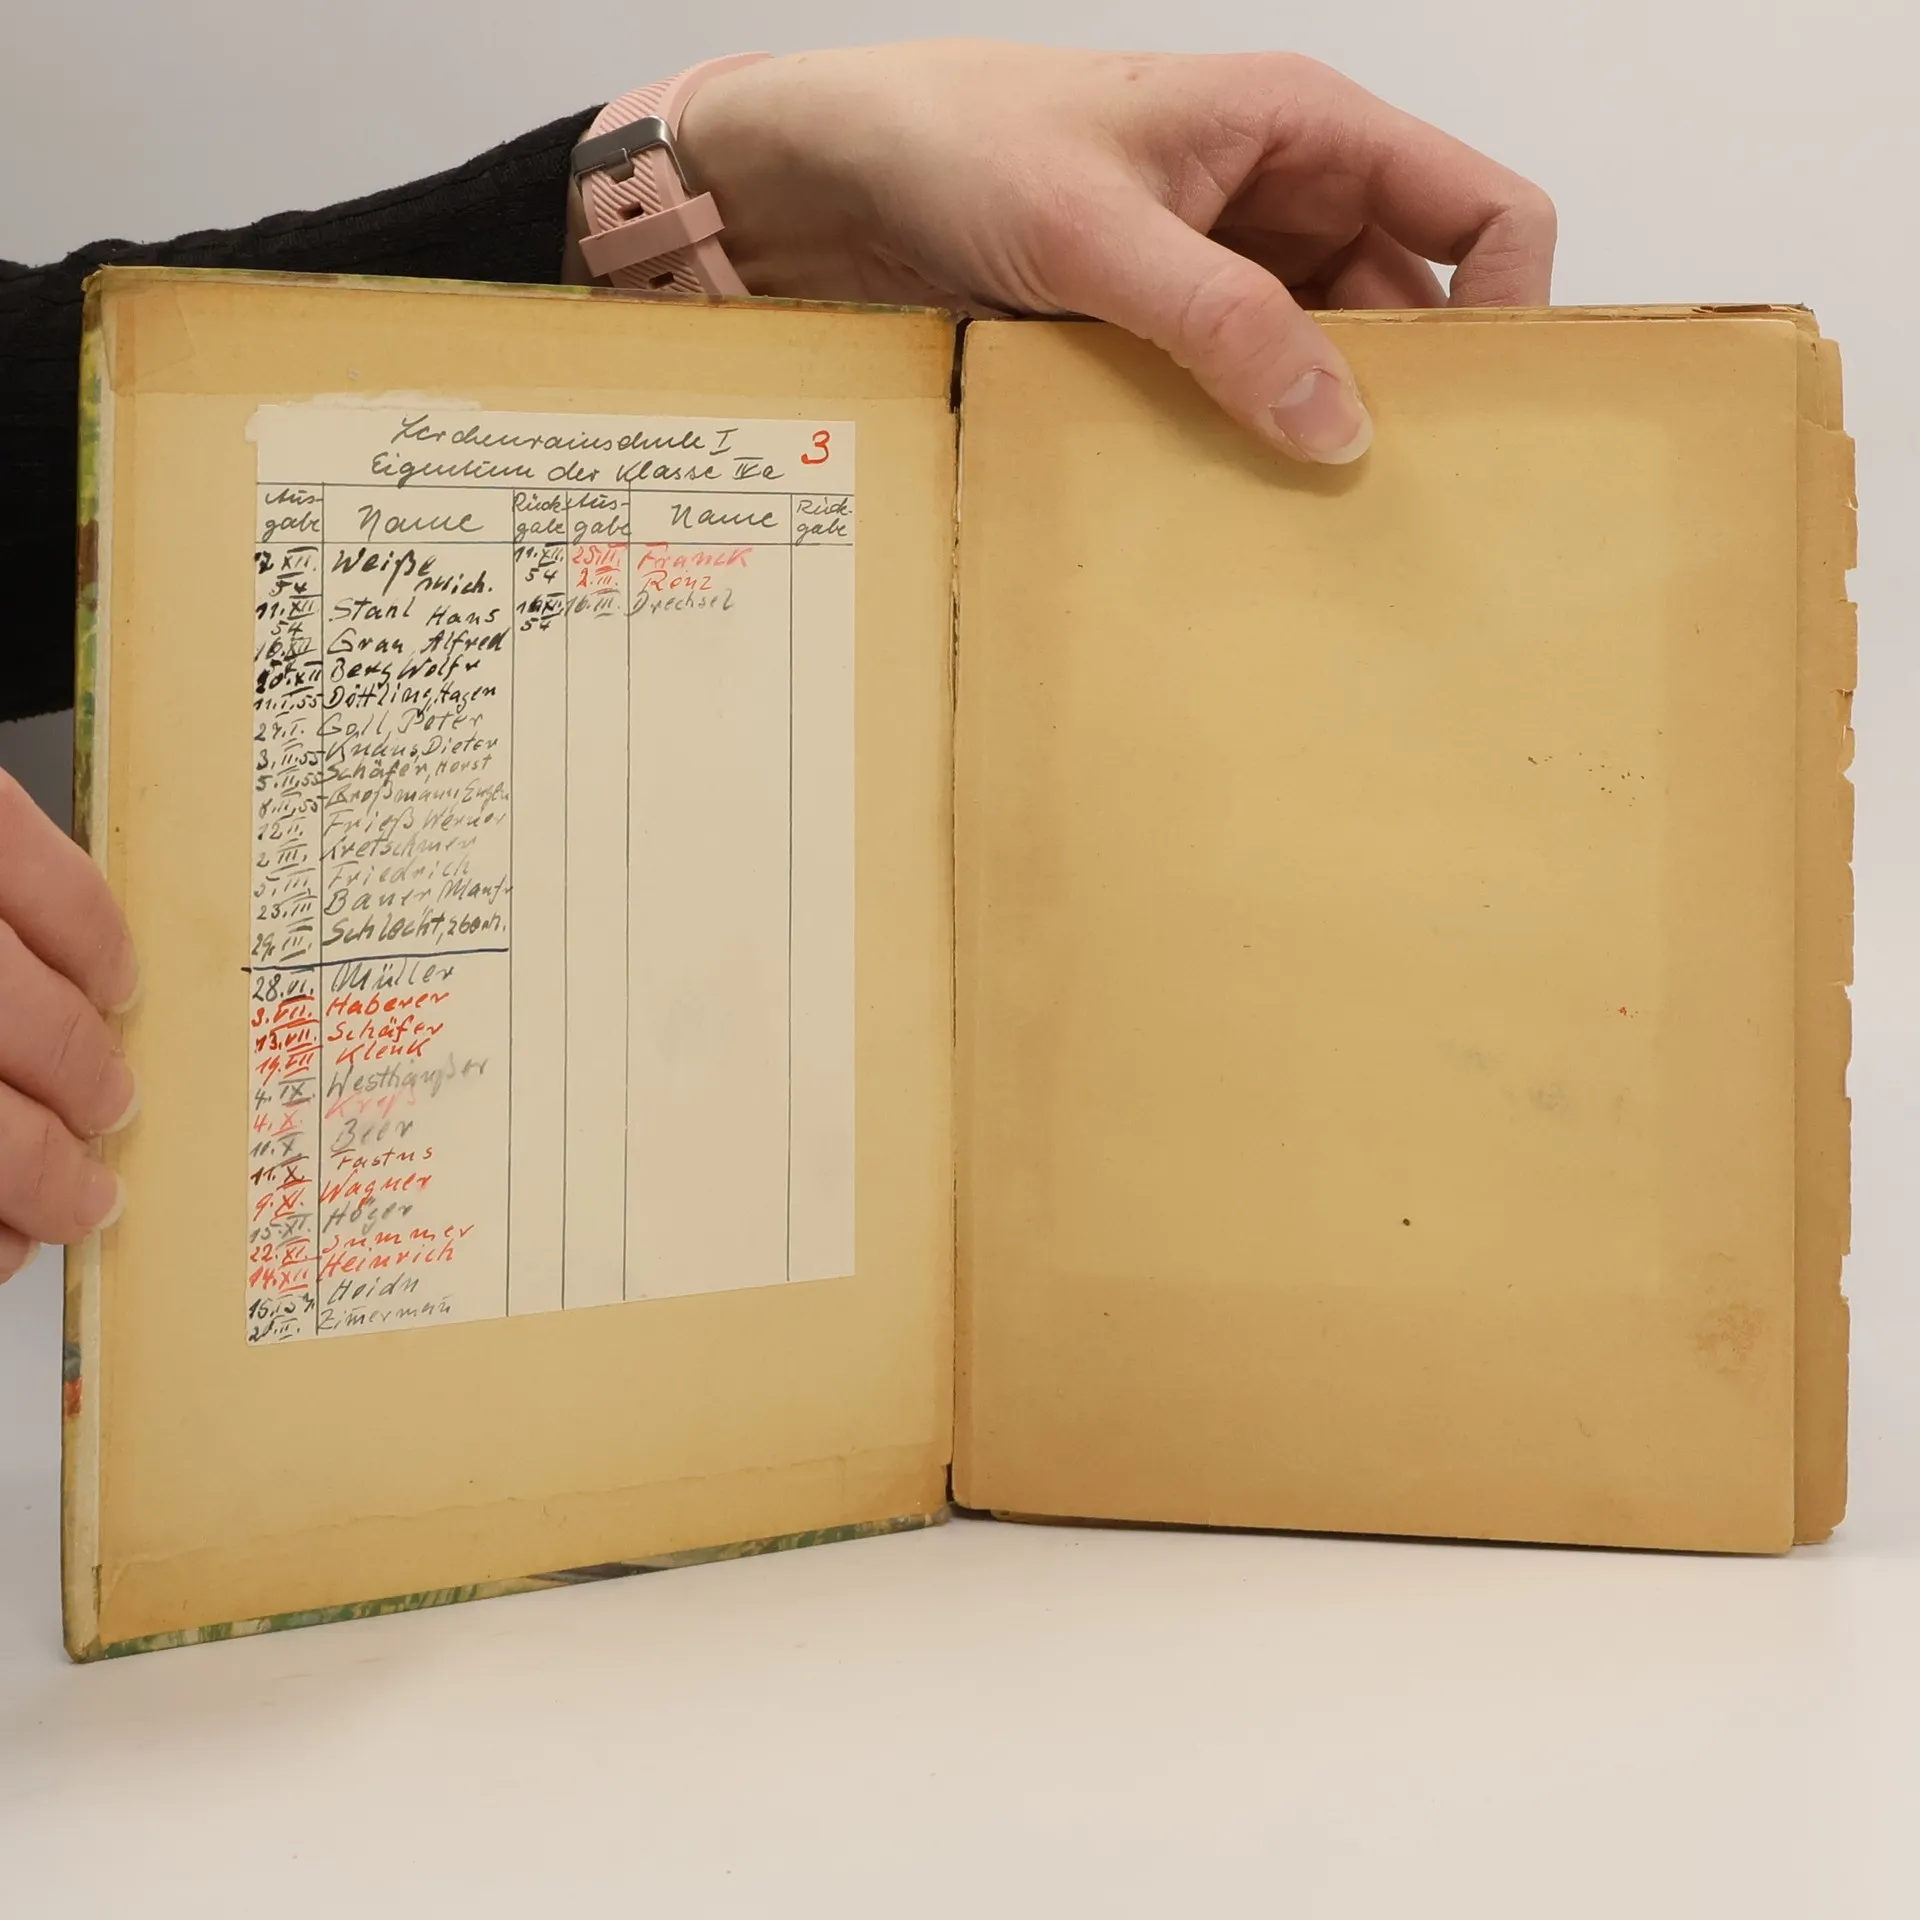 Lerchenrainschule I 3
Eigentum der Klasse IVa
Aus- Rück- Aus- Rück-
gabe Name gabe gabe Name gabe
7. XII. Weiße 11. XII. 25. II. Franck
54 Mich. 54 2. III. Renz
11. XII Stahl Hans 16. XII. 16. III. Drechsel
54 54
16. XII Grau, Alfred
20. XII Berg Wolfr
11. I. 55 Döttling, Hagen
27. I. Goll, Peter
3. II. 55 Knaus, Dieter
5. II. 55 Schäfer, Horst
8. II. 55 Großmann, Eugen
12 II. Frieß Werner
2 III. Kretschmer
5. III. Friedrich
23. III Bauer, Manfr
29. III. Schlecht,
28. VI. Müller
3. VII. Haberer
13. VII. Schäfer
19. VII Klenk
4. IX. Westhäußer
4. X. Kreß
10. X Beer
11. X. Fastus
9. XI. Wagner
15. XI. Höger
22. XI. Summer
14. XII Heinrich
15. Heidn
II. Zimermañ